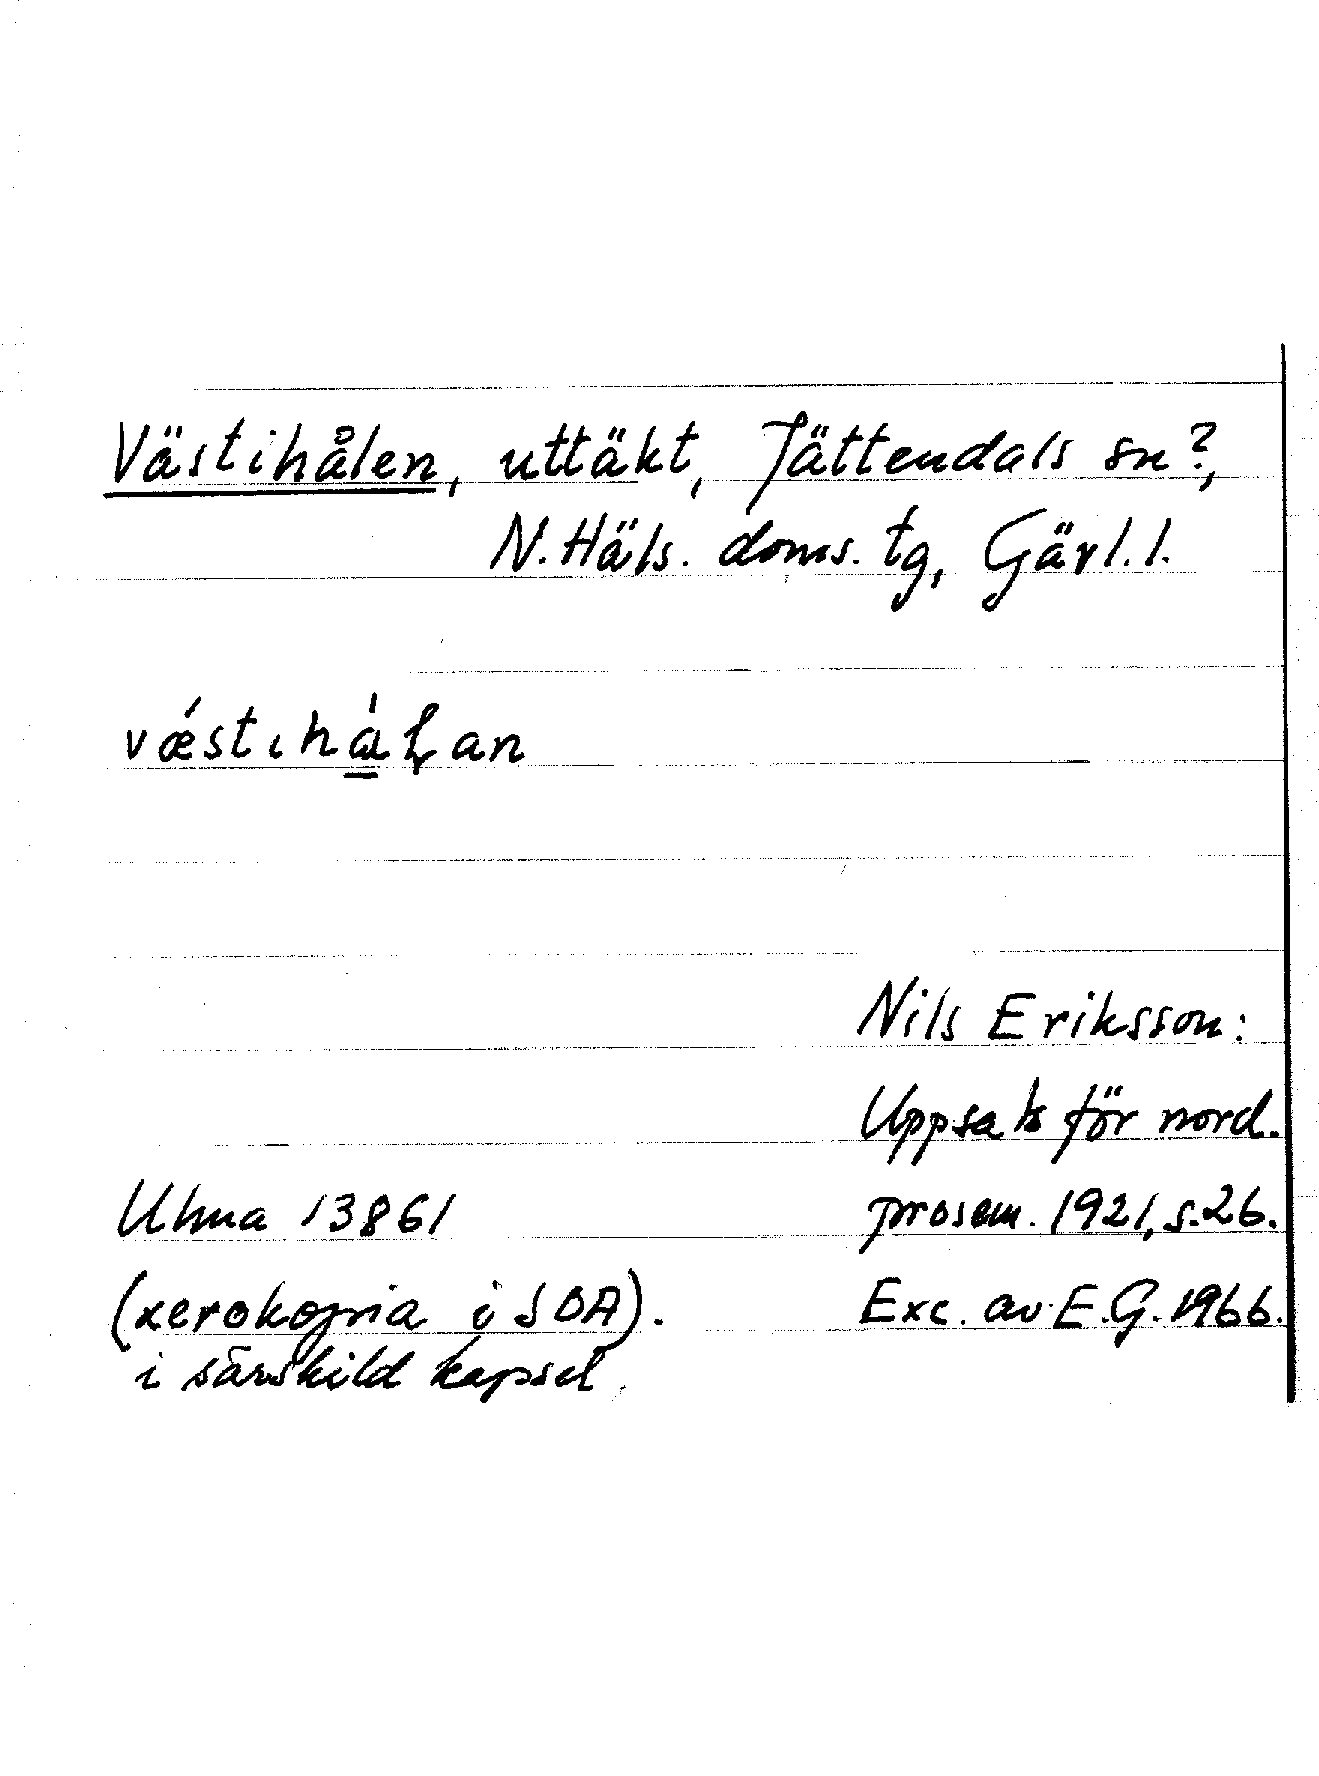 Västihålen, uttäkt, Jättendals sn?,
N. Häls. doms. tg, Gävl. l.
vǽstıhå̀ɽan
Nils Eriksson:
Uppsats för nord.
Uhma 13861
prosem. 1921, s. 26.
(xerokopia i SOA).
Exc. av E. G. 1966.
i särskild kapsel.